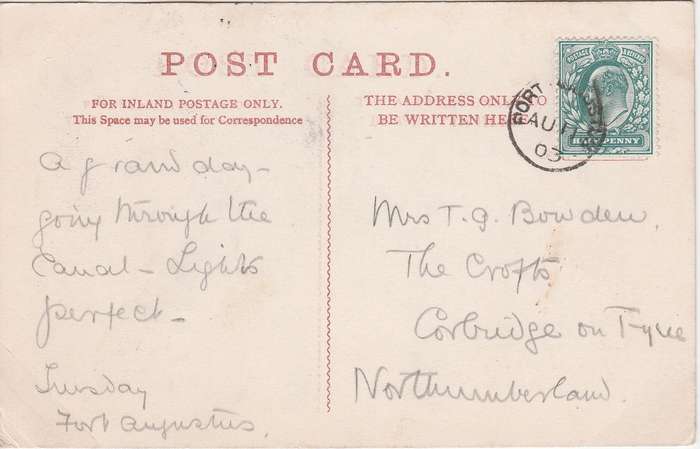 POST CARD.
FOR INLAND POSTAGE ONLY.
This Space may be used for Correspondence
THE ADDRESS ONLY TO
BE WRITTEN HERE
POSTAGE & REVENUE
HALFPENNY
PORT
AU 17
03
A grand day -
going through the
Canal - Lights
perfect -
Tuesday
Fort Augustus.
Mrs T. G. Bowden,
The Crofts
Corbridge on Tyne
Northumberland.